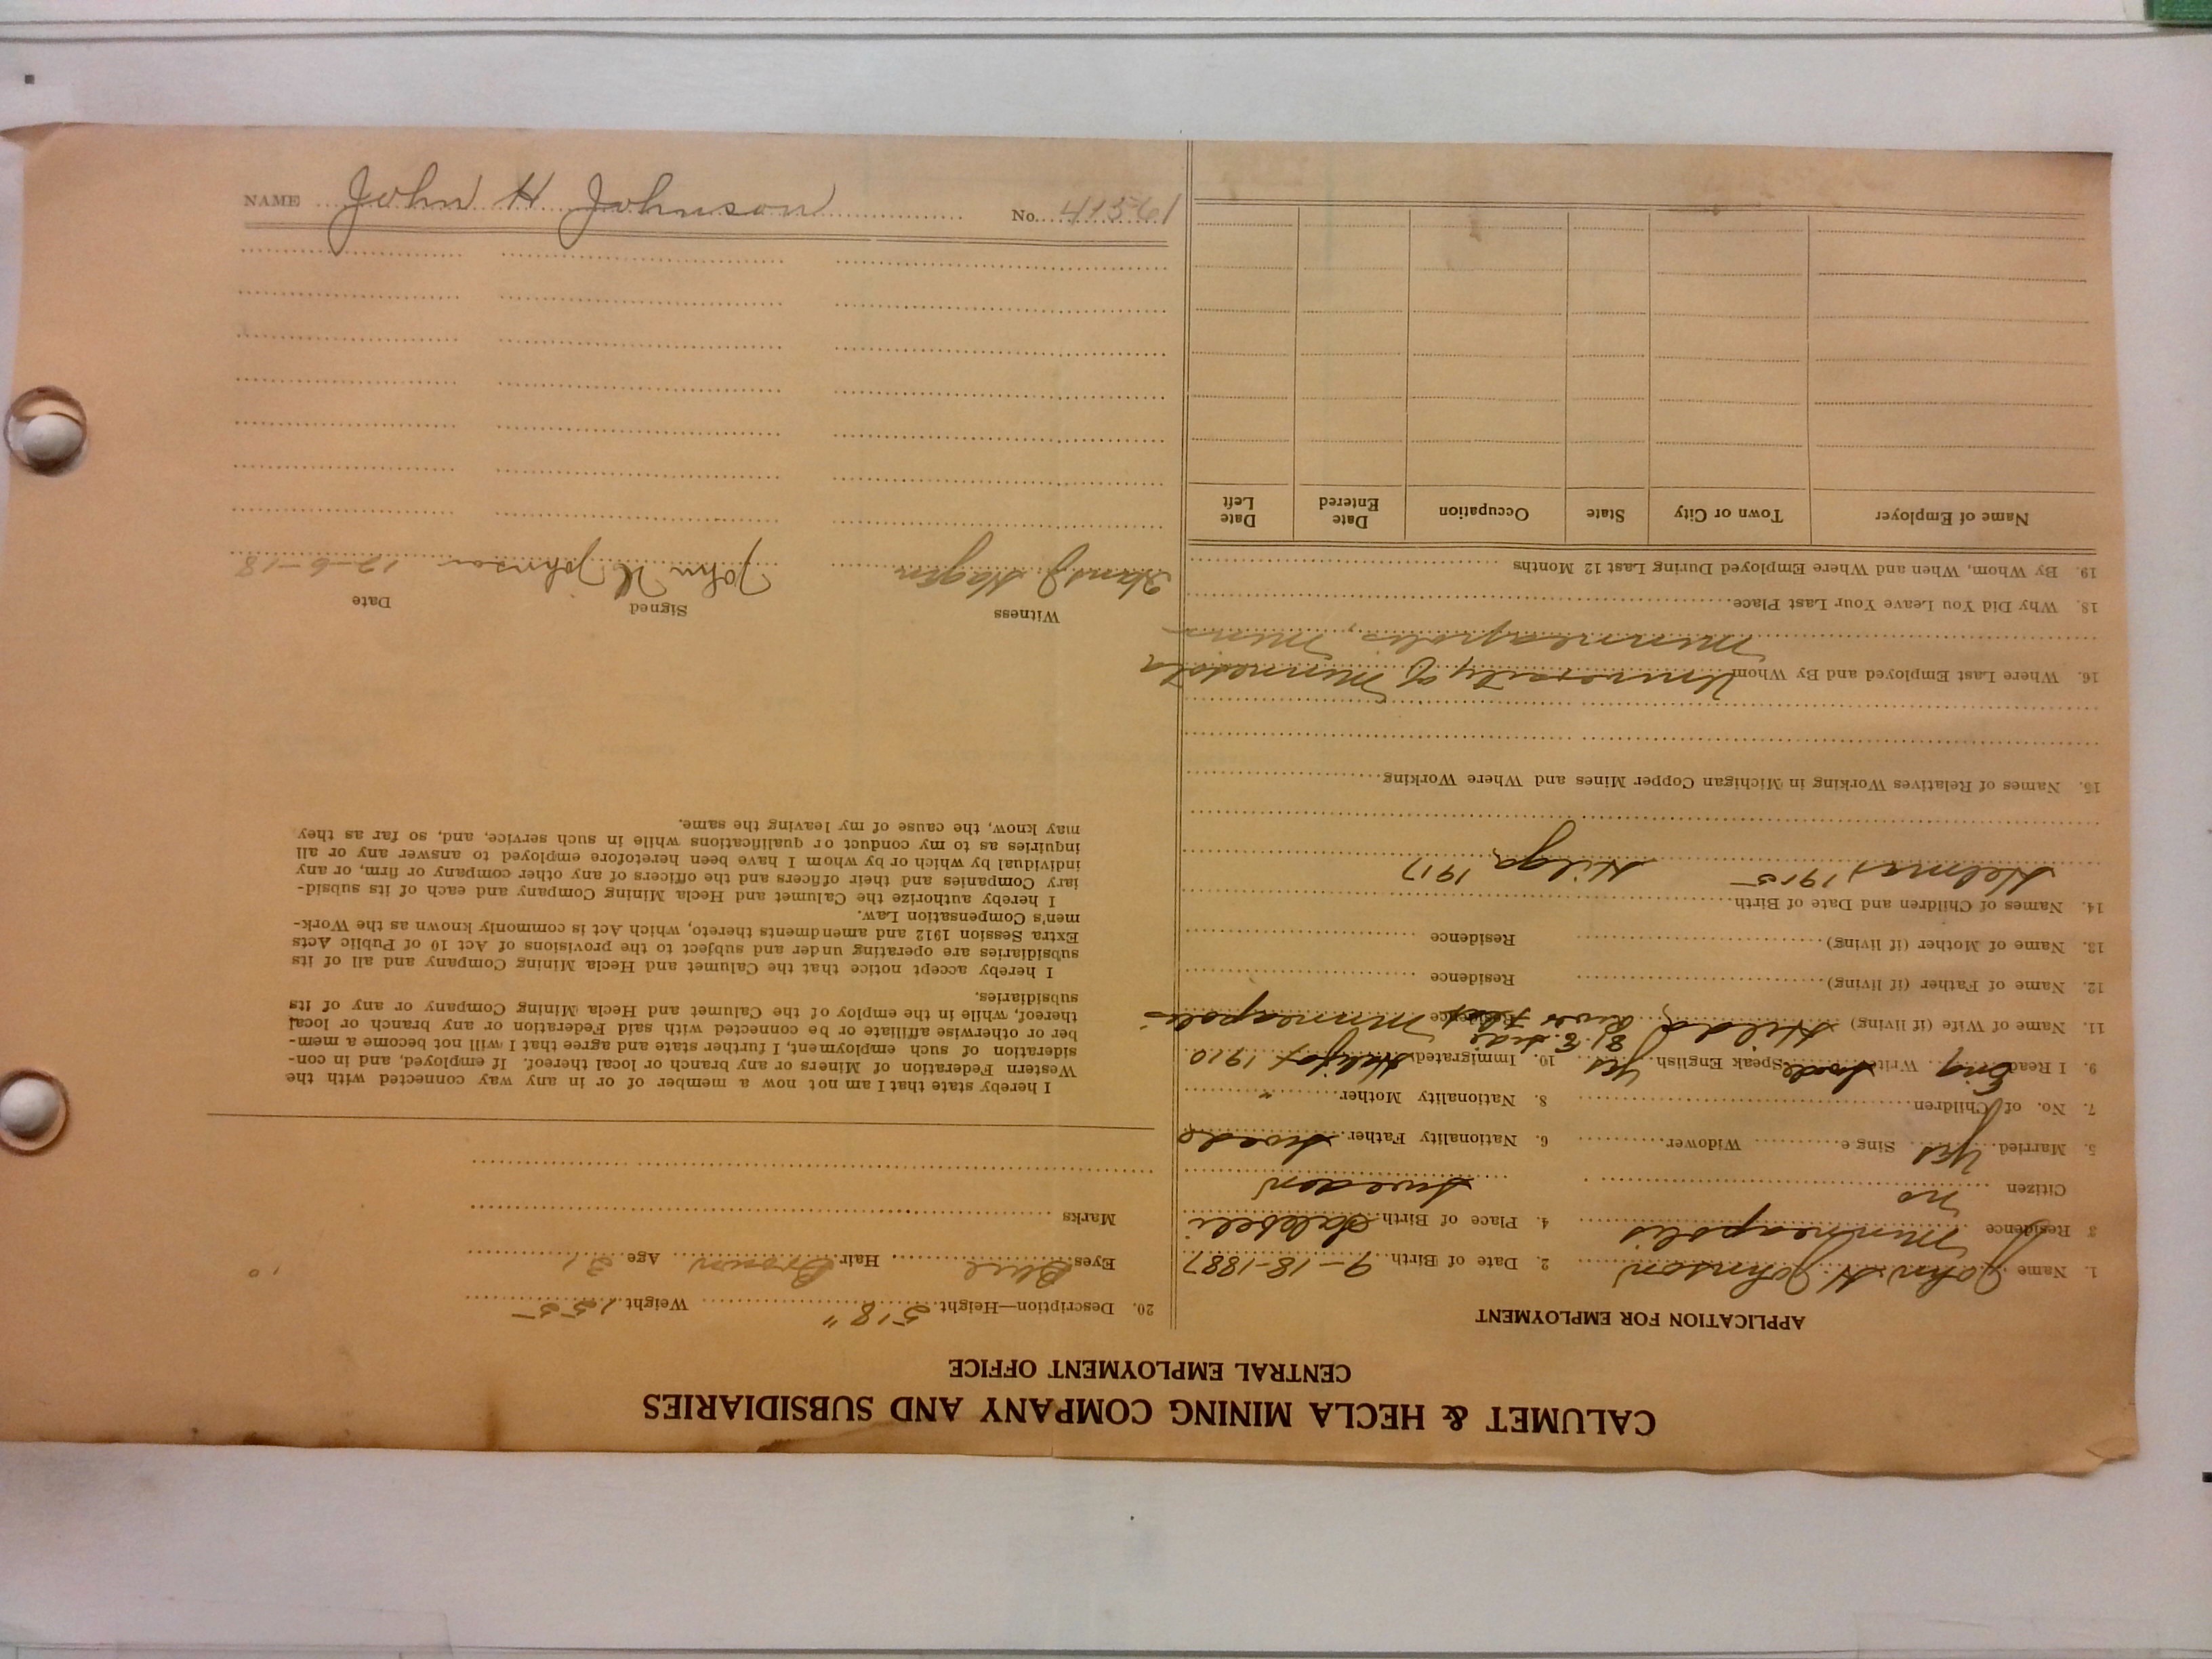 CALUMET & HECLA MINING COMPANY AND SUBSIDIARIES
CENTRAL EMPLOYMENT OFFICE
APPLICATION FOR EMPLOYMENT
1. Name John H. Johnson 2. Date of Birth 9-18-1887
3 Residence Minneapolis 4. Place of Birth
Citizen no Sweden
5. Married Yes Sing e Widower 6. Nationality Father Swede
7. No. of Children 8. Nationality Mother "
9. I Read Eng Write Swede Speak English Yes 10. Immigrated Halifax 1910
11. Name of Wife (if living) Hilda Residence Minneapolis
12. Name of Father (if living) Residence
13. Name of Mother (if living) Residence
14. Names of Children and Date of Birth
Helmer 1915 Hilga 1917
15. Names of Relatives Working in Michigan Copper Mines and Where Working
16. Where Last Employed and By Whom University of Minnesota
Minneapolis, Minn
18. Why Did You Leave Your Last Place
19. By Whom, When and Where Employed During Last 12 Months
Name of Employer Town or City State Occupation Date Entered Date Left
20. Description—Height 5'8" Weight 155
Eyes Blue Hair Brown Age 31
Marks
I hereby state that I am not now a member of or in any way connected with the
Western Federation of Miners or any branch or local thereof. If employed, and in con-
sideration of such employment, I further state and agree that I will not become a mem-
ber or otherwise affiliate or be connected with said Federation or any branch or local
thereof, while in the employ of the Calumet and Hecla Mining Company or any of its
subsidiaries.
I hereby accept notice that the Calumet and Hecla Mining Company and all of its
subsidiaries are operating under and subject to the provisions of Act 10 of Public Acts
Extra Session 1912 and amendments thereto, which Act is commonly known as the Work-
men's Compensation Law.
I hereby authorize the Calumet and Hecla Mining Company and each of its subsid-
iary Companies and their officers and the officers of any other company or firm, or any
individual by which or by whom I have been heretofore employed to answer any or all
inquiries as to my conduct or qualifications while in such service, and, so far as they
may know, the cause of my leaving the same.
Witness Signed Date
Hans J Hagen John H Johnson 12-6-18
NAME John H Johnson No. 41561